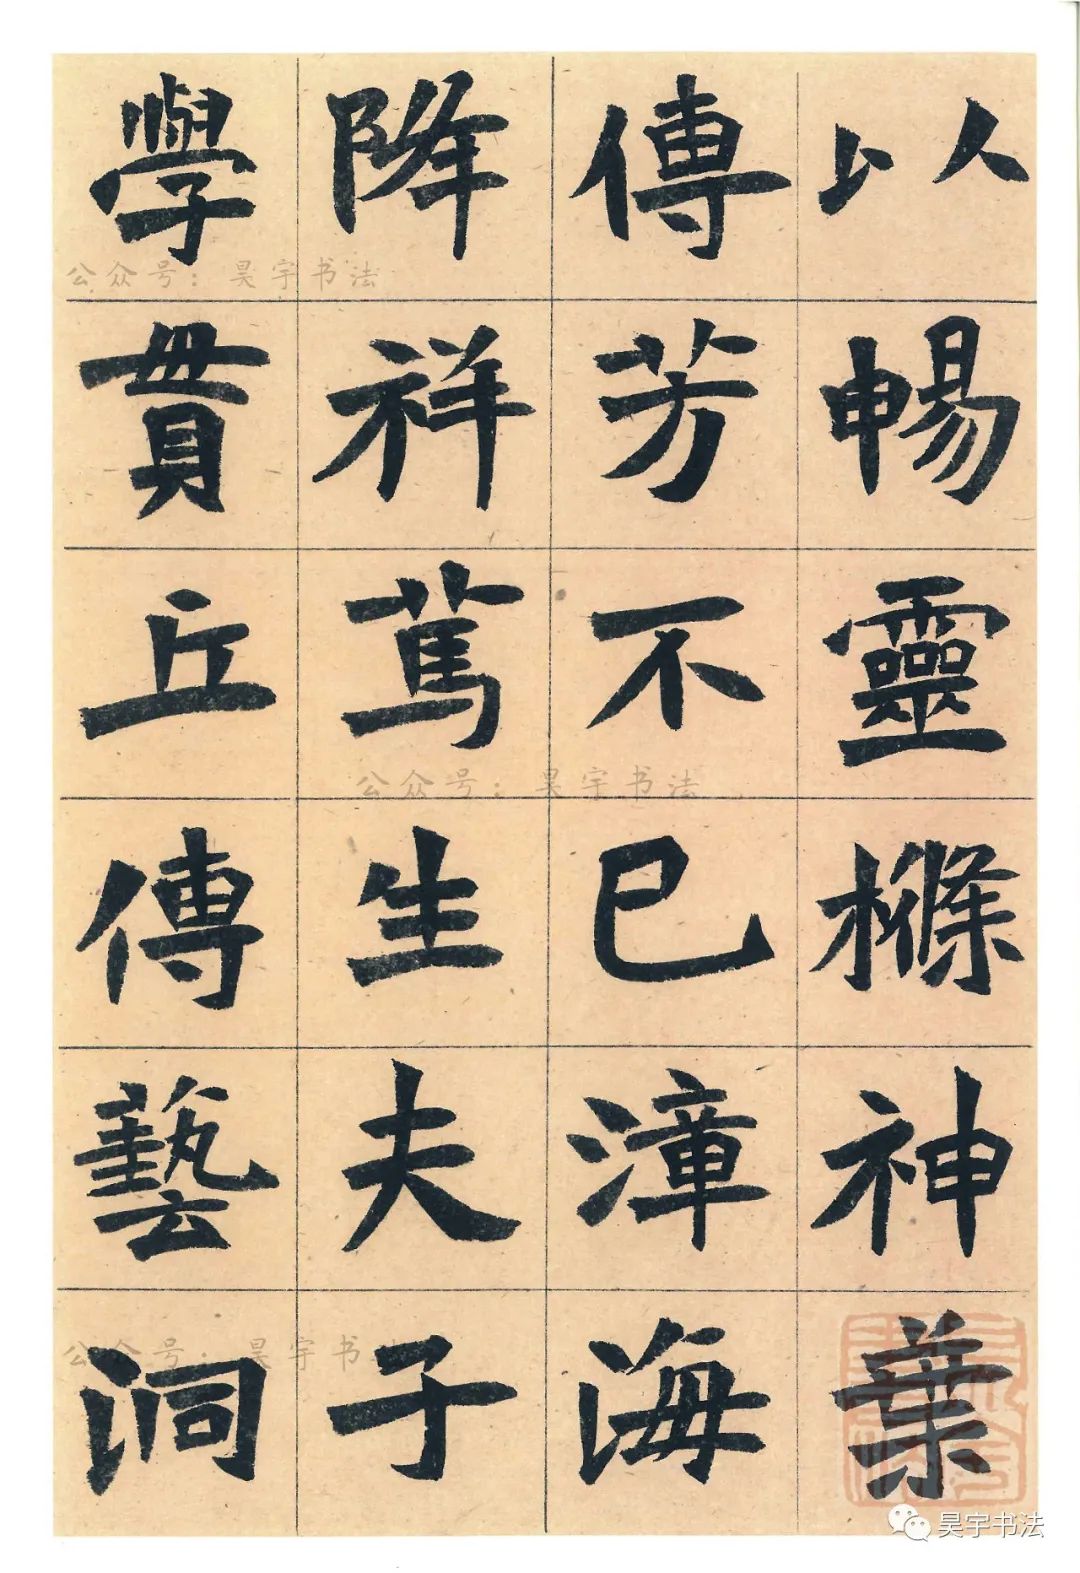 以暢靈樤神葉
傳芳不已漳海
降祥篤生夫子
學貫丘傳藝洞
公众号：昊宇书法
公众号：昊宇书法
公众号：昊宇书
昊宇书法